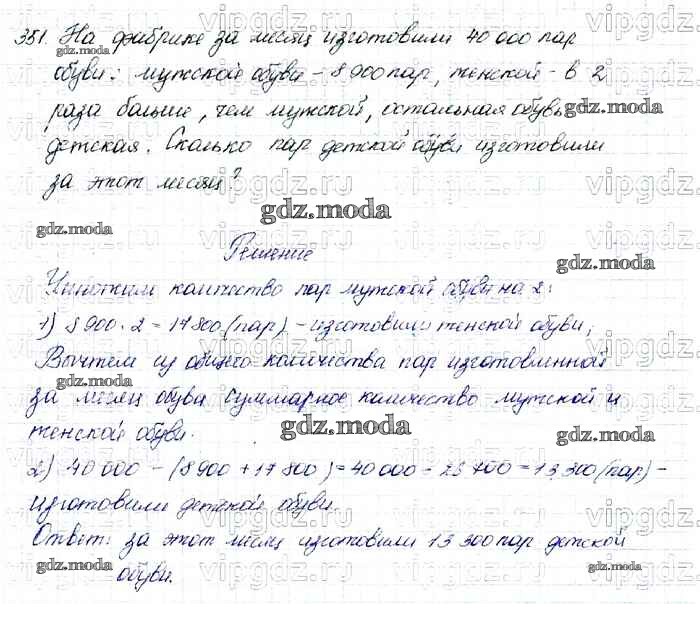 351. На фабрике за месяц изготовили 40 000 пар
обуви: мужской обуви - 8 900 пар, женской - в 2
раза больше, чем мужской, остальная обувь
детская. Сколько пар детской обуви изготовили
за этот месяц?
Решение
Умножим количество пар мужской обуви на 2:
1) 8 900 · 2 = 17 800 (пар) - изготовили женской обуви;
Вычтем из общего количества пар изготовленной
за месяц обуви суммарное количество мужской и
женской обуви.
2) 40 000 - (8 900 + 17 800) = 40 000 - 26 700 = 13 300 (пар) -
изготовили детской обуви.
Ответ: за этот месяц изготовили 13 300 пар детской
обуви.
gdz.moda
vipgdz.ru